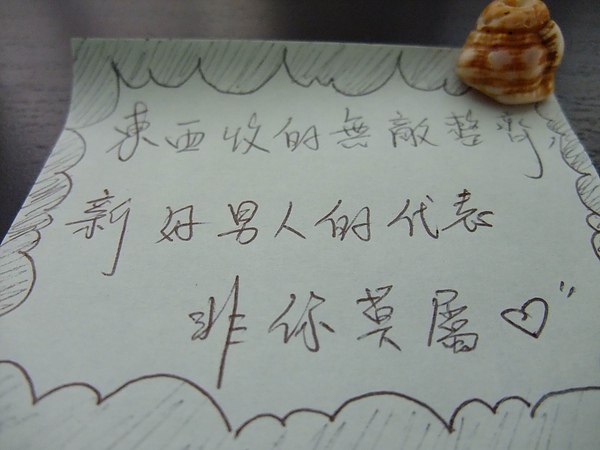 東西收的無敵整齊,
新好男人的代表
非你莫屬♡"